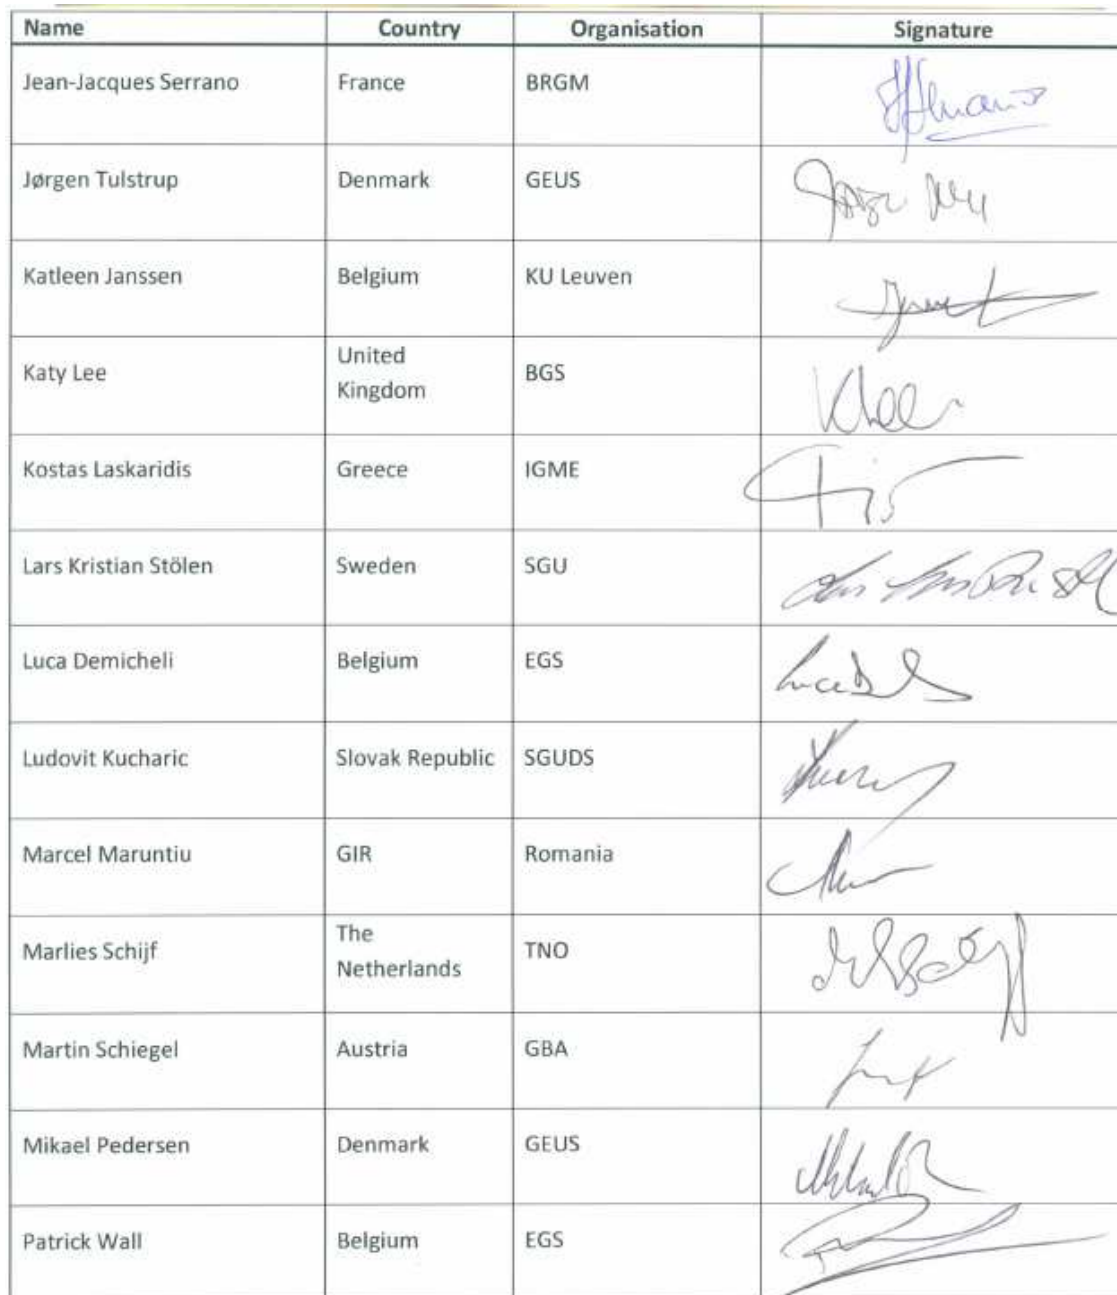 Name Country Organisation Signature
Jean-Jacques Serrano France BRGM
Jørgen Tulstrup Denmark GEUS
Katleen Janssen Belgium KU Leuven
United
Katy Lee BGS
Kingdom
Kostas Laskaridis Greece IGME
Lars Kristian Stölen Sweden SGU
Luca Demicheli Belgium EGS
Ludovit Kucharic Slovak Republic SGUDS
Marcel Maruntiu GIR Romania
The
Marlies Schijf TNO
Netherlands
Martin Schiegel Austria GBA
Mikael Pedersen Denmark GEUS
Patrick Wall Belgium EGS